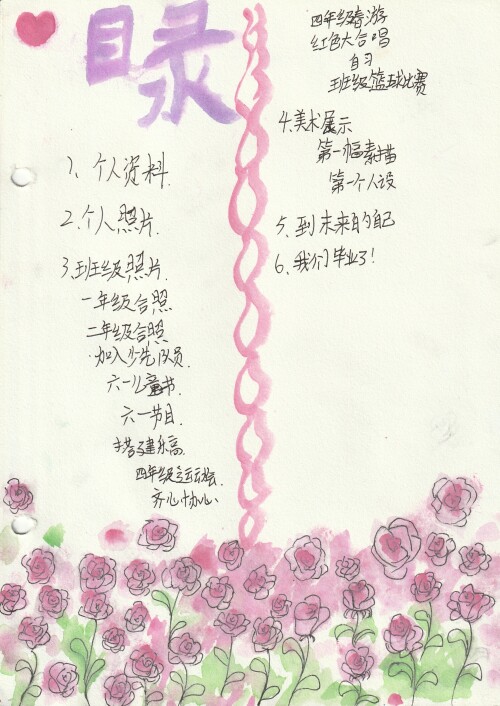 目录
1、个人资料.
2.个人照片.
3.班级照片.
一年级合照
二年级合照
加入少先队员.
六一儿童节.
六一节目.
搭建乐高.
四年级运动会.
齐心协心
四年级春游
红色大合唱
自习
班级篮球比赛
4.美术展示
第一幅素描
第一个人设
5.到未来的自己
6.我们毕业了!